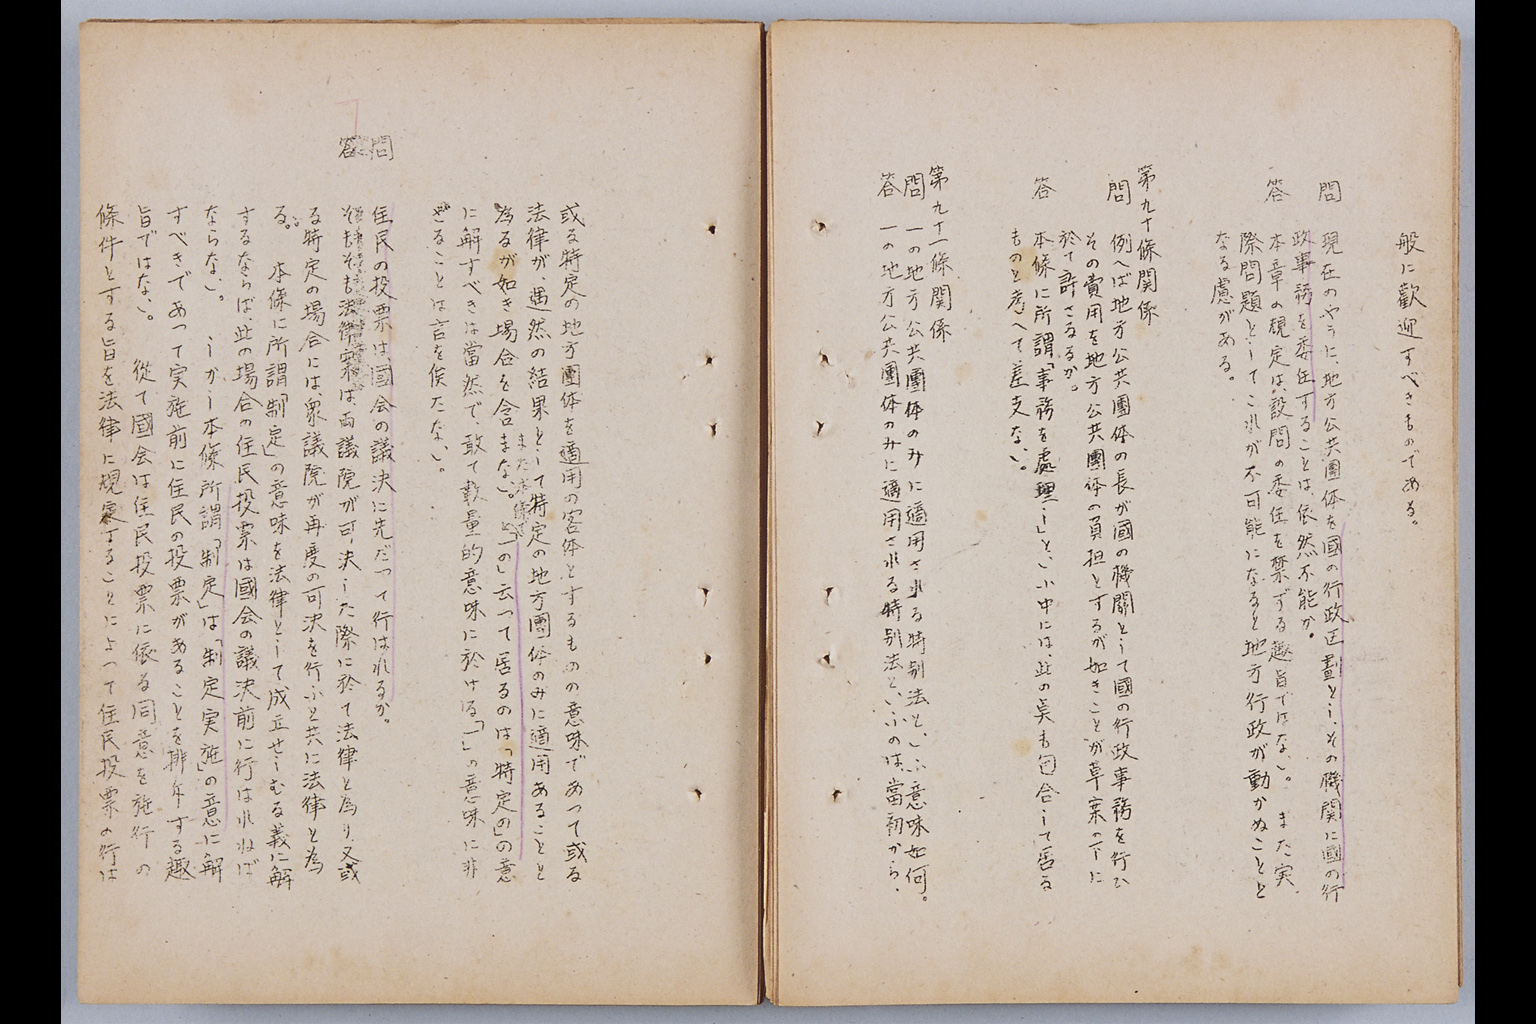 般に歓迎すべきものである。
問 現在のやうに、地方公共團体を國の行政區劃とし、その機関に國の行
政事務を委任することは、依然不能か。
答 本章の規定は、設問の委任を禁ずる趣旨ではない。また実
際問題としてこれが不可能になると地方行政が動かぬことと
なる慮がある。
第九十條関係
問 例へば地方公共團体の長が國の機關として國の行政事務を行ひ
その費用を地方公共團体の負担とするが如きことが草案の下に
於て許さるるか。
答 本條に所謂「事務を處理し」といふ中には、此の点も包含して居る
ものと考へて差支ない。
第九十一條関係
問 一の地方公共團体のみに適用される特別法といふ意味如何。
答 一の地方公共團体のみに適用される特別法といふのは、當初から、
或る特定の地方團体を適用の客体とするものの意味であつて或る
法律が、偶然の結果として特定の地方團体のみに適用あることと
為るが如き場合を含まない。また本條で「一の」云つて居るのは「特定の」の意
に解すべきは當然で、敢て數量的意味に於ける「一」の意味に非
ざることは言を俟たない。
問 住民の投票は、國会の議決に先だつて行はれるか。
答 そもそも法律案は、両議院が可決した際に於て法律と為り、又或
る特定の場合には、衆議院が再度の可決を行ふと共に法律と為
る。 本條に所謂「制定」の意味を法律として成立せしむる義に解
するならば、此の場合の住民投票は國会の議決前に行はれねば
ならない。 しかし本條所謂「制定」は「制定実施」の意に解
すべきであつて実施前に住民の投票があることを排斥する趣
旨ではない。 從て國会は住民投票に依る同意を施行の
條件とする旨を法律に規定することによつて住民投票の行は